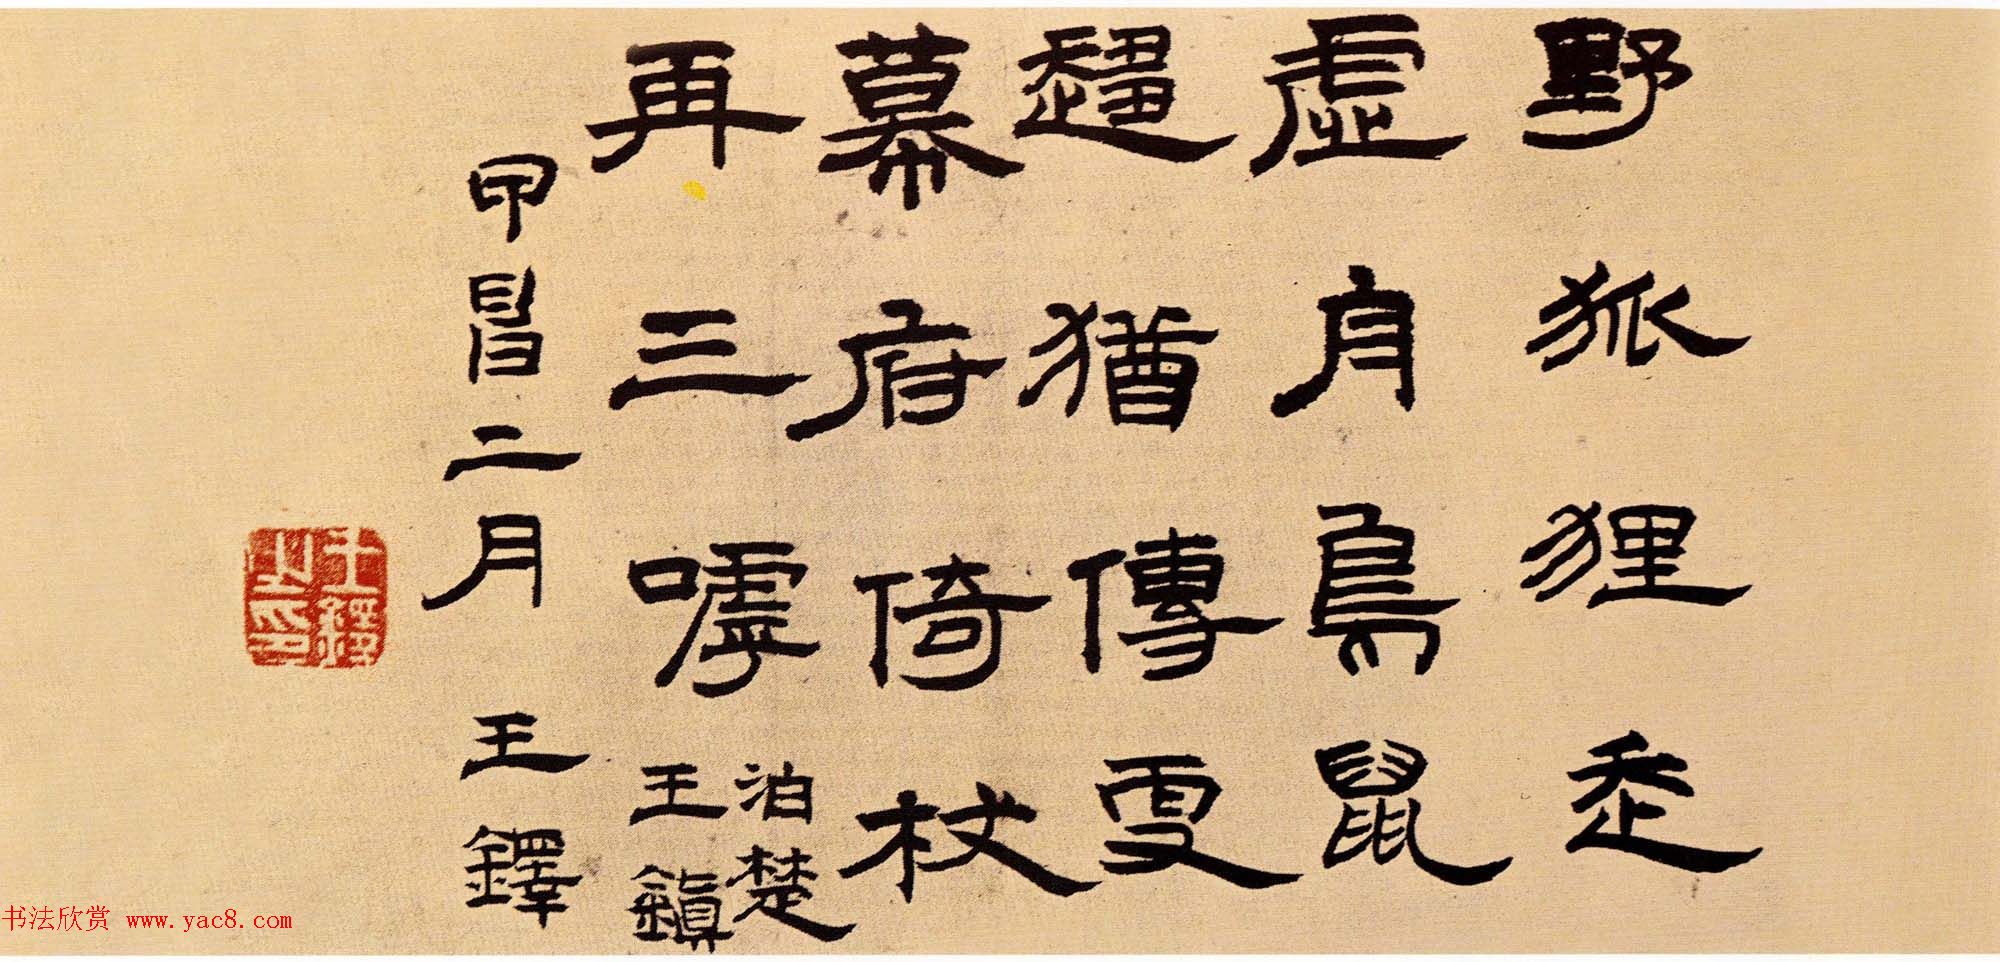 野狐狸走
虛舟鳥鼠
趨猶傳更
幕府倚杖
再三嘑
泊楚
王鎮
甲申二月 王鐸
王鐸之印
书法欣赏 www.yac8.com